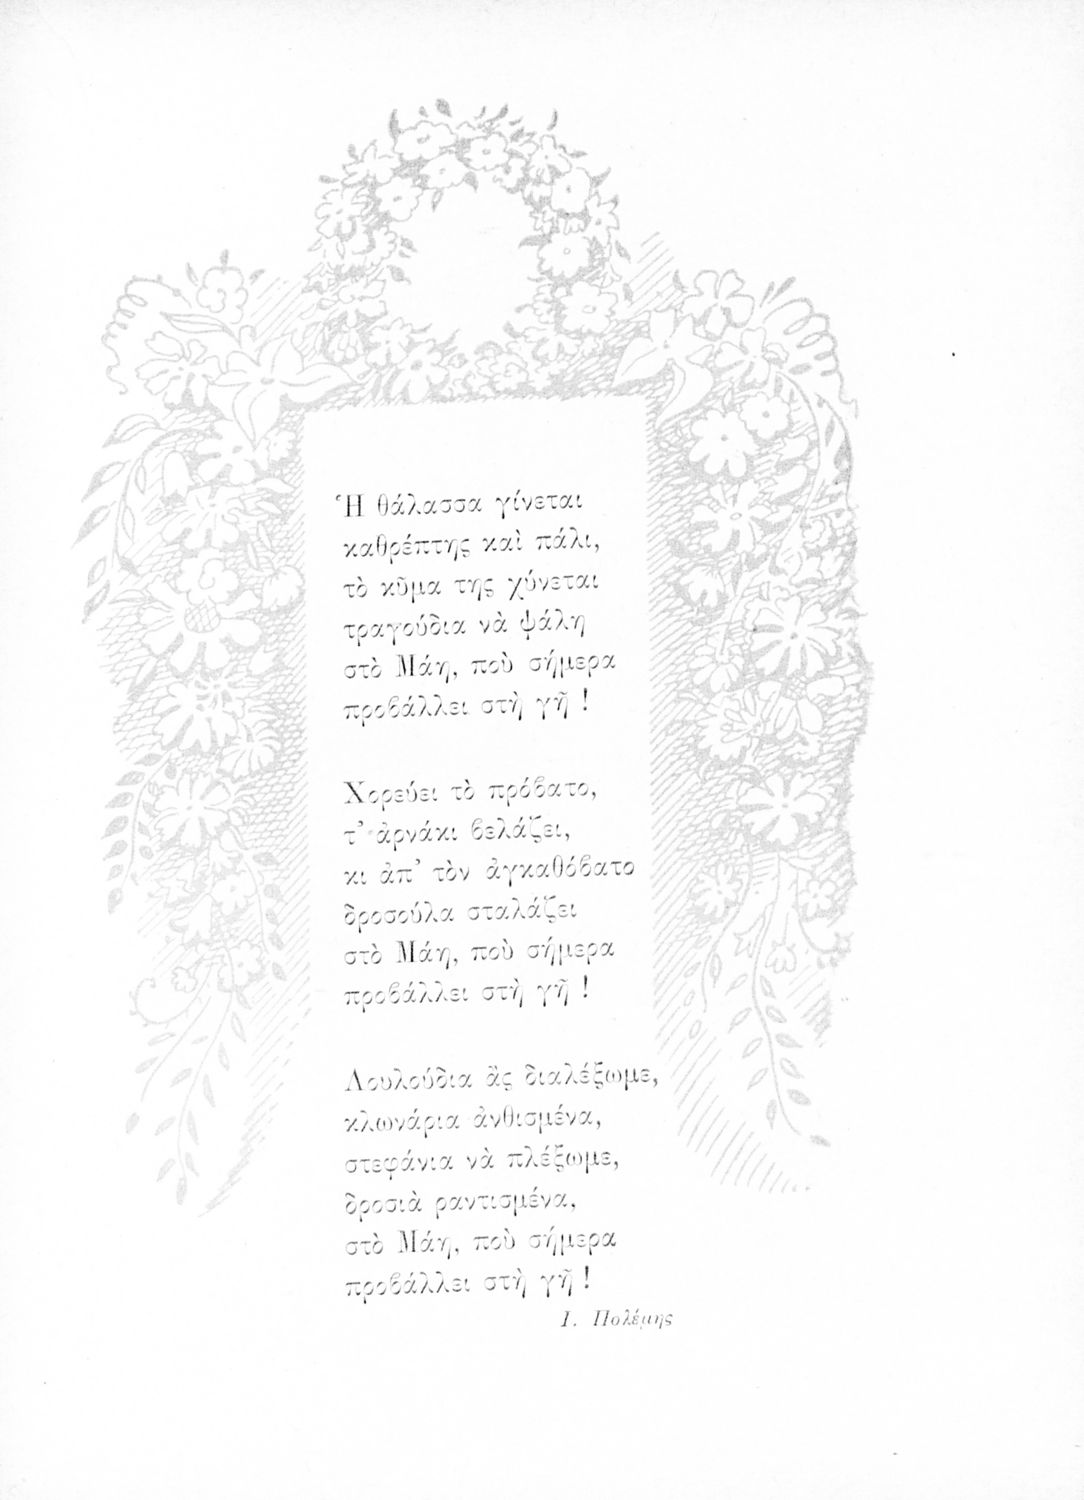 Ἡ θάλασσα γίνεται
καθρέπτης καὶ πάλι,
τὸ κῦμα της χύνεται
τραγούδια νὰ ψάλη
στὸ Μάη, ποὺ σήμερα
προβάλλει στὴ γῆ !
Χορεύει τὸ πρόβατο,
τ’ ἀρνάκι βελάζει,
κι ἀπ’ τὸν ἀγκαθόβατο
δροσούλα σταλάζει
στὸ Μάη, ποὺ σήμερα
προβάλλει στὴ γῆ !
Λουλούδια ἂς διαλέξωμε,
κλωνάρια ἀνθισμένα,
στεφάνια νὰ πλέξωμε,
δροσιὰ ραντισμένα,
στὸ Μάη, ποὺ σήμερα
προβάλλει στὴ γῆ !
Ι. Πολέμης